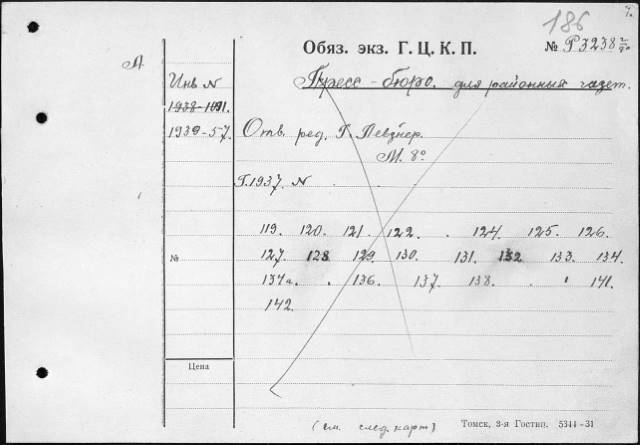 186
Обяз. экз. Г. Ц. К. П. № Р3238
Пресс-бюро. для районных газет.
Инв N
1938-1091.
1939-57.
Отв. ред. Г. Певзнер.
М. 8°
Г. 1937. N . . .
119. 120. 121. 122. . 124. 125. 126.
№ 127. 128 129. 130. 131. 132 133. 134.
134а. . 136. 137. 138. . . 141.
142.
Цена
(см. след. карт)
Томск, 3-я Гостип. 5344-31